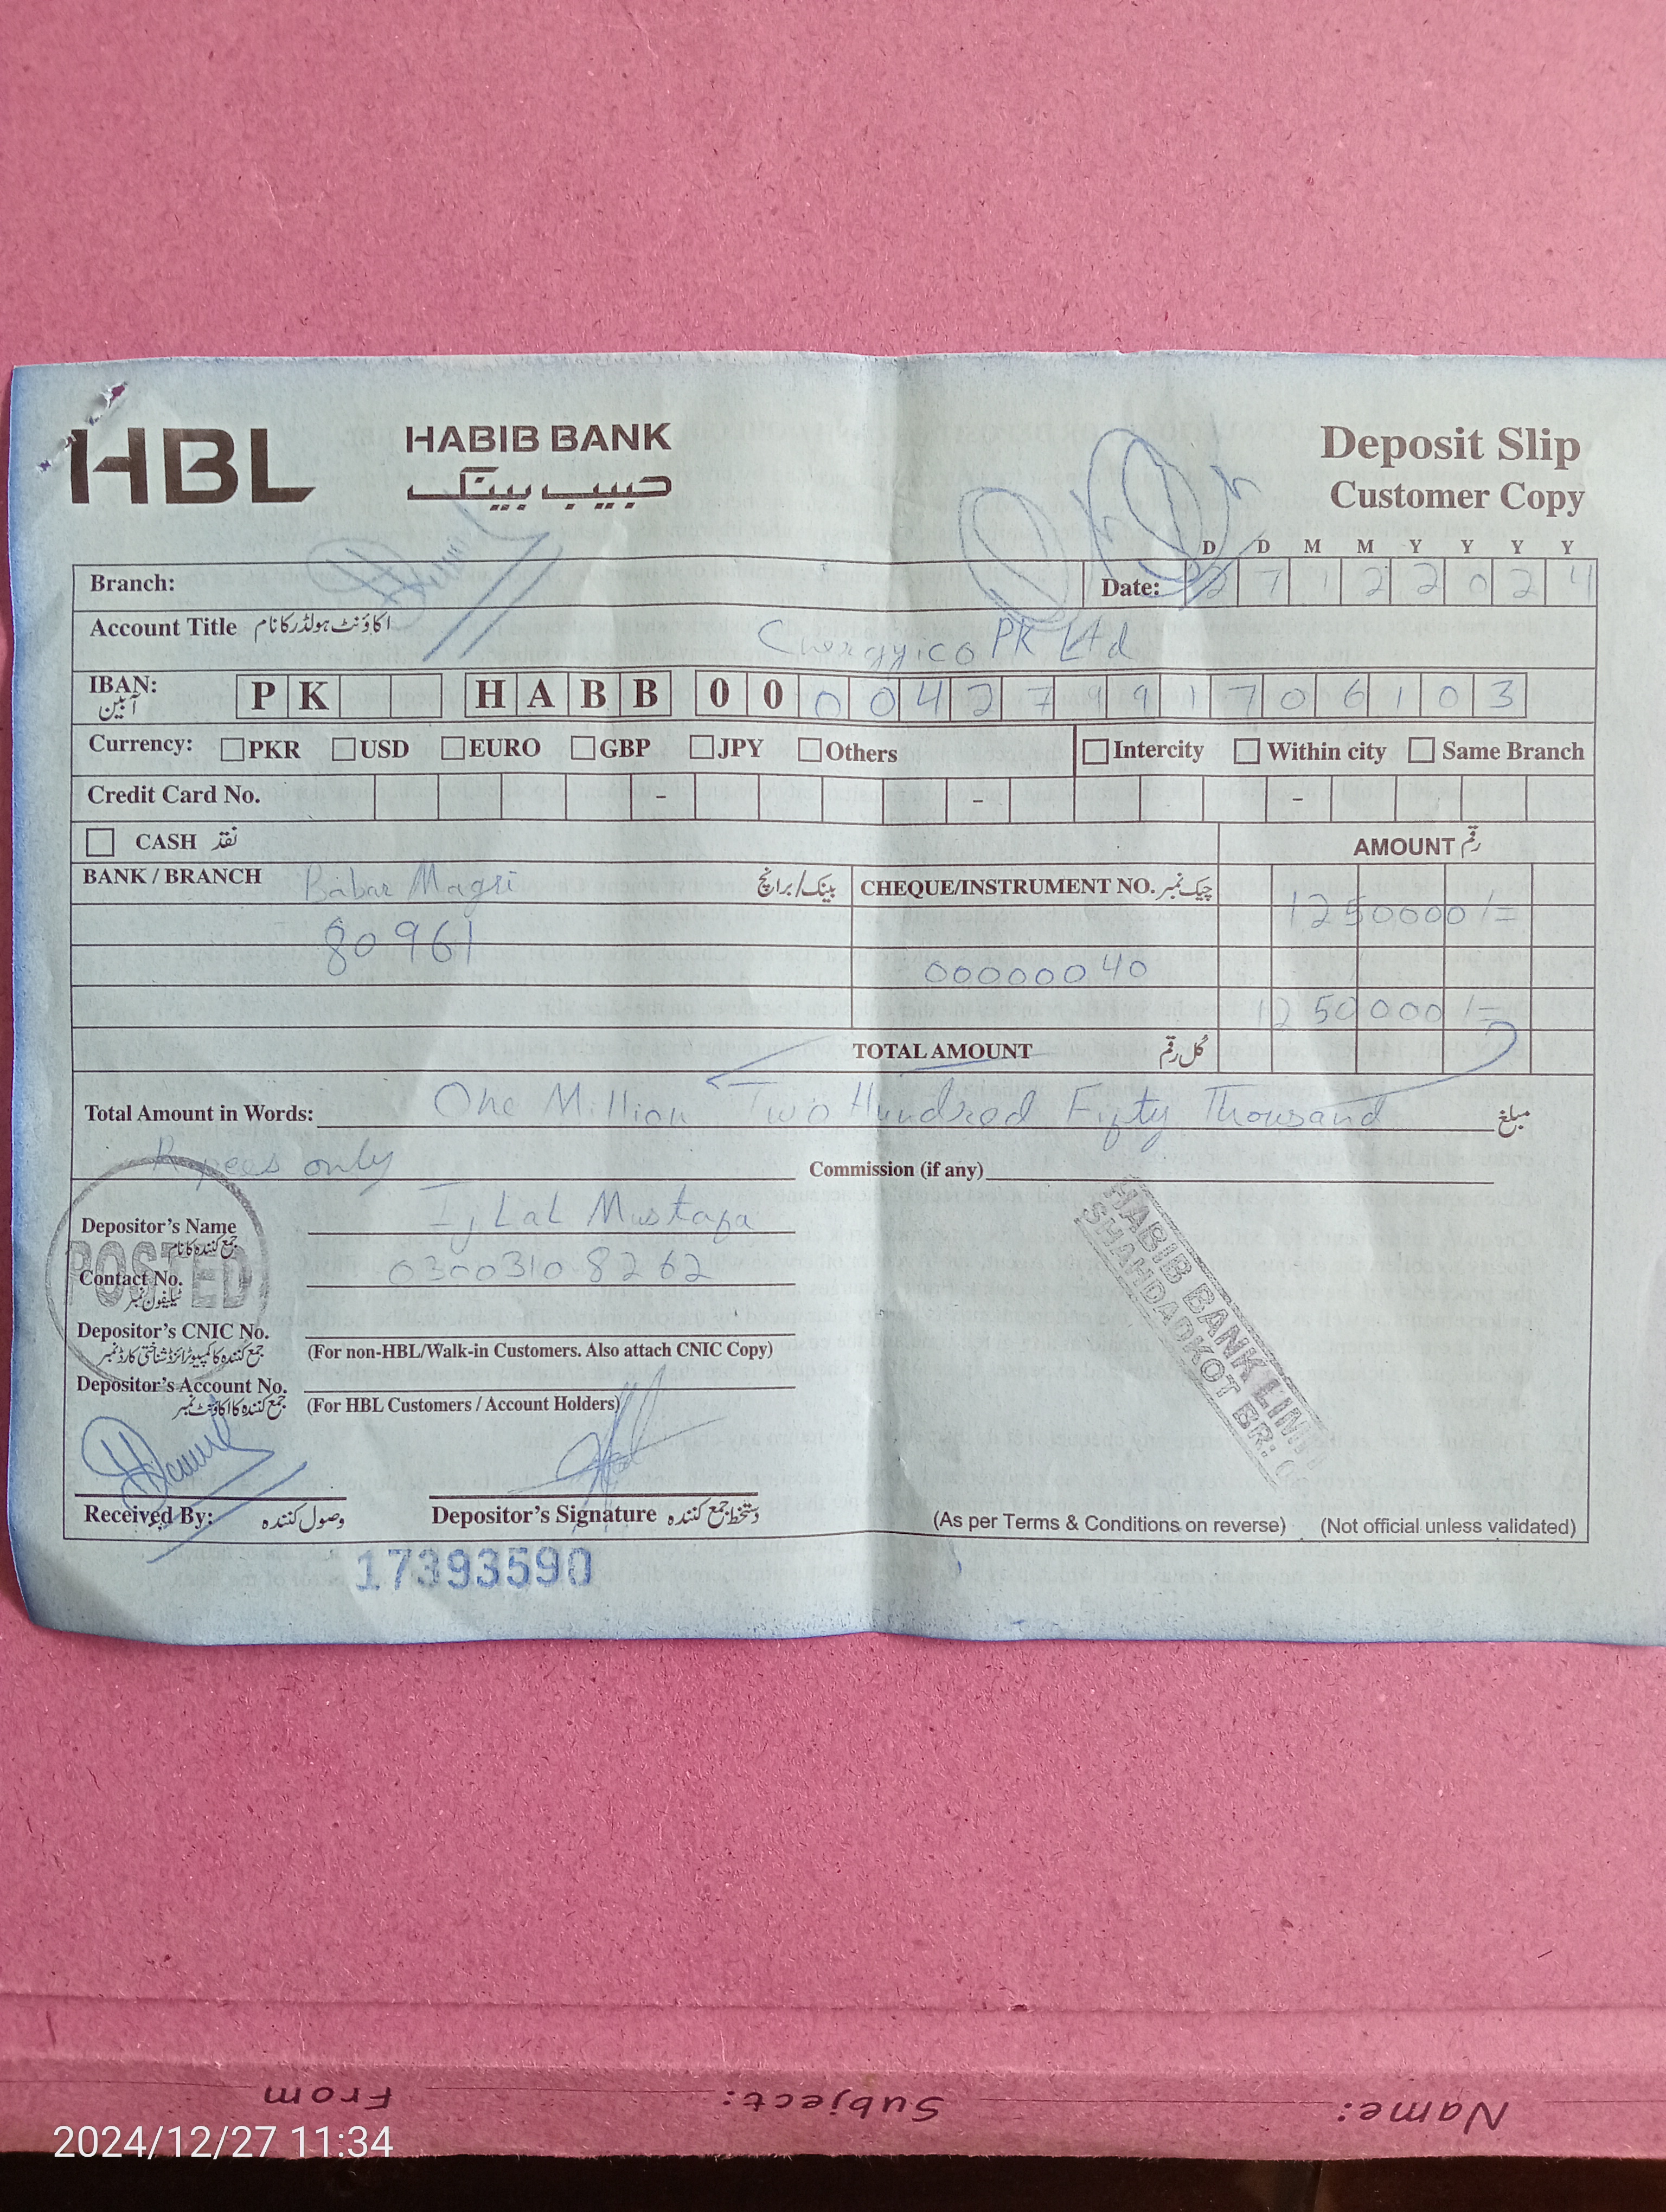 HBL HABIB BANK
حبيب بينک
Deposit Slip
Customer Copy
D D M M Y Y Y Y
Branch: Date: 2 7 1 2 2 0 2 4
Account Title اکاؤنٹ ہولڈر کا نام Cnergyico PK Ltd
IBAN: آئبین P K H A B B 0 0 0 0 4 2 7 9 9 1 7 0 6 1 0 3
Currency: PKR USD EURO GBP JPY Others Intercity Within city Same Branch
Credit Card No. - - -
CASH نقد AMOUNT رقم
BANK / BRANCH Babar Magsi بینک/برانچ CHEQUE/INSTRUMENT NO. چیک نمبر
1250000/=
80961
00000040
1250000/=
TOTAL AMOUNT کُل رقم
Total Amount in Words: One Million Two Hundred Fifty Thousand مبلغ
Rupees only Commission (if any)
Depositor's Name جمع کنندہ کا نام Lal Mustafa
POSTED
Contact No. ٹیلیفون نمبر 03003108262
Depositor's CNIC No. جمع کنندہ کا کمپیوٹرائزڈ شناختی کارڈ نمبر
(For non-HBL/Walk-in Customers. Also attach CNIC Copy)
Depositor's Account No. جمع کنندہ کا اکاؤنٹ نمبر
(For HBL Customers / Account Holders)
HABIB BANK LIMI
SHAHDADKOT BR:
Received By: وصول کنندہ Depositor's Signature دستخط جمع کنندہ
(As per Terms & Conditions on reverse) (Not official unless validated)
17393590
Name: Subject: From
2024/12/27 11:34